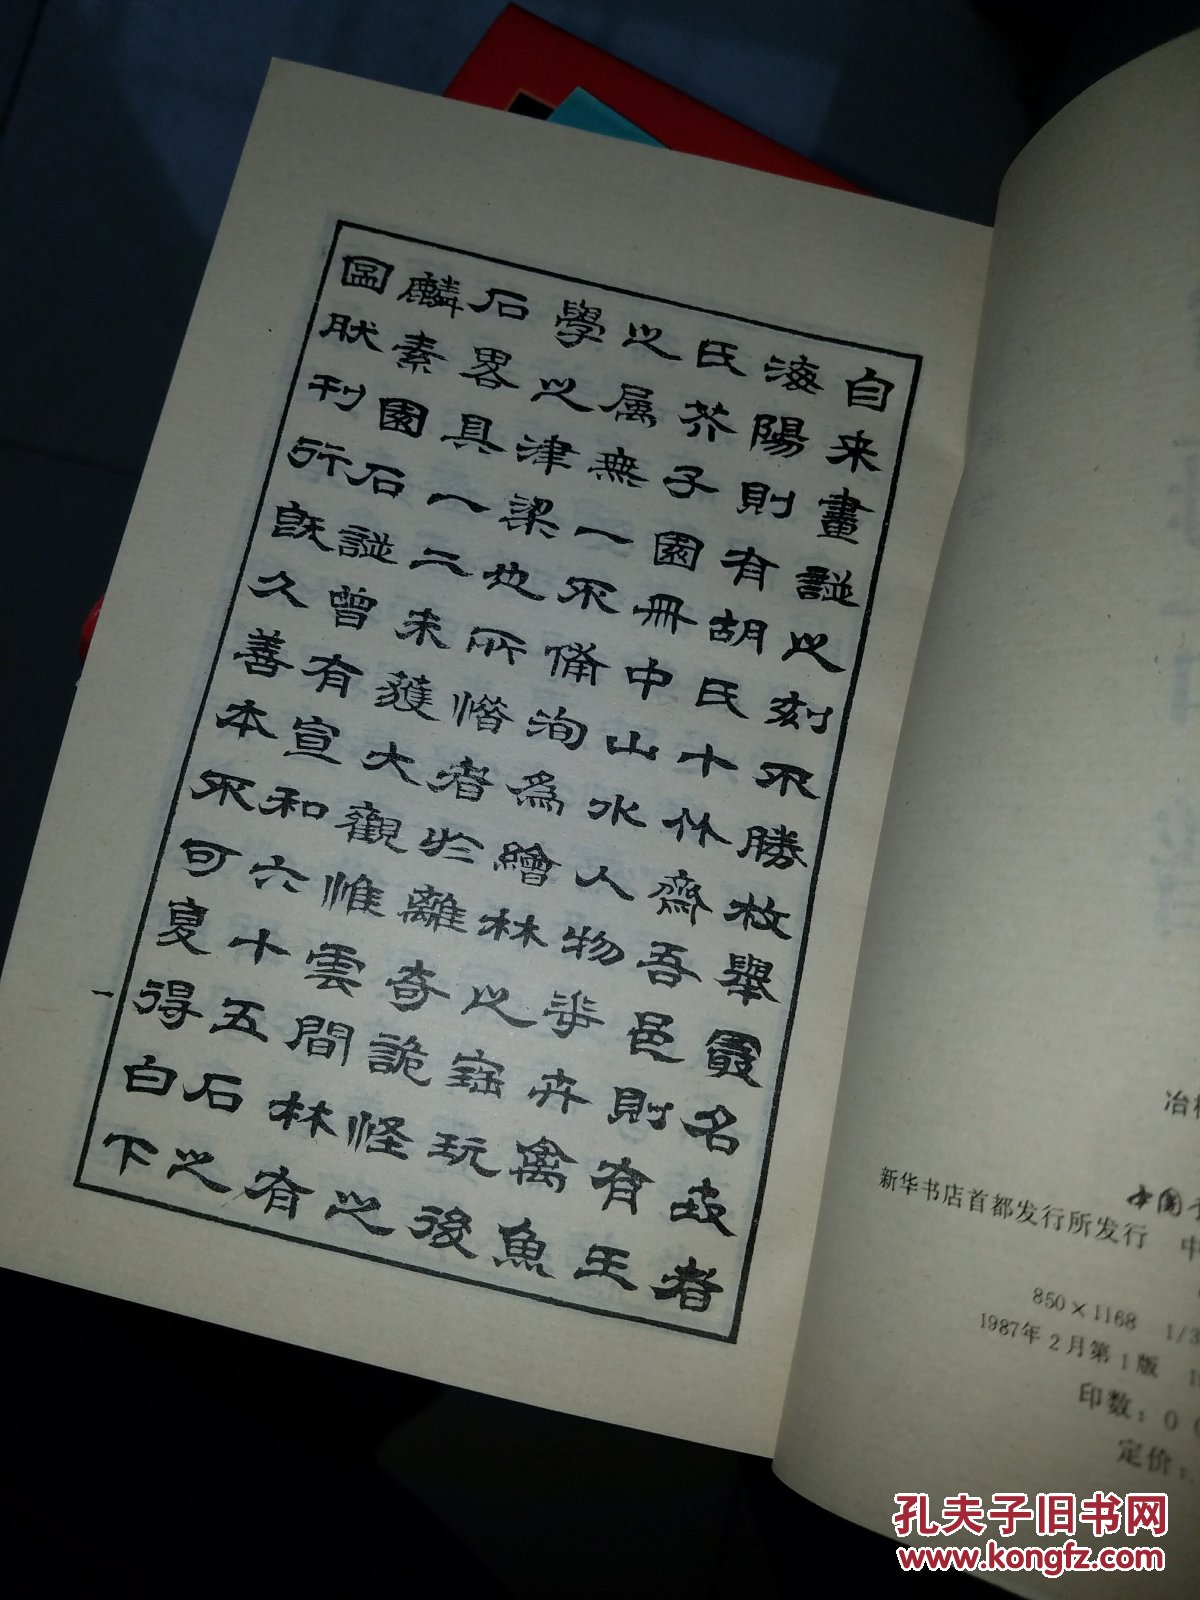 自来畫譜之刻不勝枚舉最名者
海陽則有胡氏十竹齋吾邑則有王
氏芥子園冊中山水人物華卉禽魚
之属無一不備洵為繪林之寶玩後
學之津梁也所惜者於離奇詭怪之
石畧具一二未獲大觀惟雲間林有
麟素園石譜曾有宣和六十五石之
圖肰刊行既久善本不可夏得白下
一
冶
中国
新华书店首都发行所发行 中
850×1168 1/3
1987年2月第1版 19
印数：0
定价：
孔夫子旧书网
www.kongfz.com